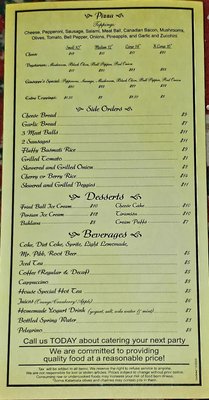 Pizza
Toppings:
Cheese, Pepperoni, Sausage, Salami, Meat Ball, Canadian Bacon, Mushrooms,
Olives, Tomato, Bell Pepper, Onions, Pineapple, and Garlic and Zucchini
Small 10" Medium 12" Large 14" X-Large 16"
Cheese
Vegetarian: Mushroom, Black Olive, Bell Pepper, Red Onion
Special: Pepperoni, Sausage, Mushroom, Black Olive, Bell Pepper, Red Onion
Extra Toppings:
Side Orders
Cheese Bread
Garlic Bread
3 Meat Balls
2 Sausages
Fluffy Basmati Rice
Grilled Tomato
Skewered and Grilled Onion
Cherry or Berry Rice
Skewered and Grilled Veggies
Desserts
Fried Ball Ice Cream Cheese Cake
Persian Ice Cream Tiramisu
Baklava Cream Puffs
Beverages
Coke, Diet Coke, Sprite, Light Lemonade,
Mr. Pibb, Root Beer
Iced Tea
Coffee (Regular & Decaf)
Cappuccino
House Special Hot Tea
Juices (Orange/Cranberry/Apple)
Homemade Yogurt Drink (yogurt, salt, soda water & mint)
Bottled Spring Water
Pelegrino
Call us TODAY about catering your next party
We are committed to providing
quality food at a reasonable price!
Tax will be added to all items. We reserve the right to refuse service to anyone.
We are not responsible for lost or stolen articles. Prices subject to change without prior notice.
Consuming raw or undercooked foods may increase your risk of food born illness.
Some Kabables dishes and cherries may contain pits in them.